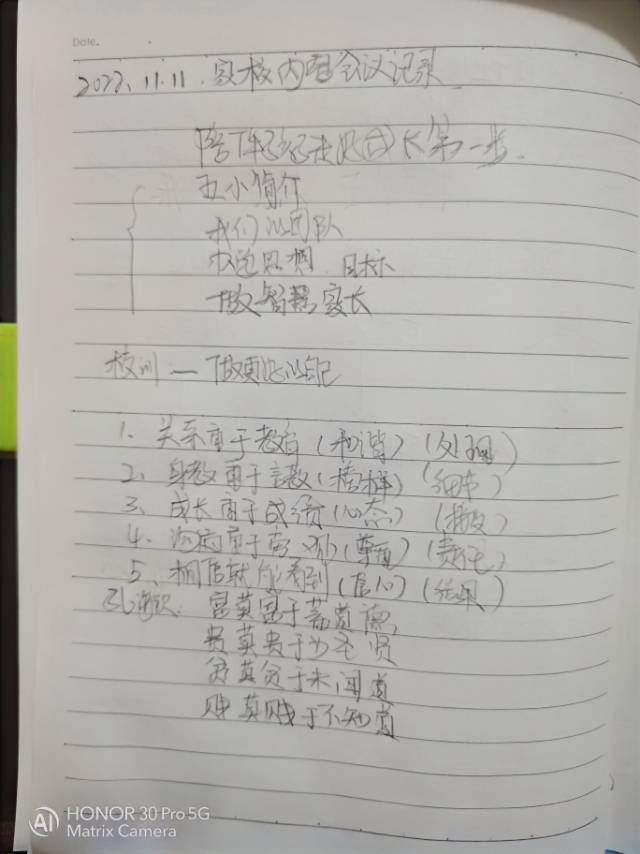 Date.
2022.11.11.家校内部会议记录
陪伴孩子走好成长第一步.
五小
我们的团队
思想 目标
做智慧家长
校训 — 做更好的自己
1. 关系重于教育 (和谐) (处理)
2、身教重于言教 (榜样) (细节)
3、成长重于成绩 (心态) (接受)
4. 重于 (尊重) (责任)
5、相信就能看到 (信心) (结果)
富莫富于蓄道德,
贵莫贵于为圣贤
贫莫贫于未闻道
贱莫贱于不知
HONOR 30 Pro 5G
Matrix Camera